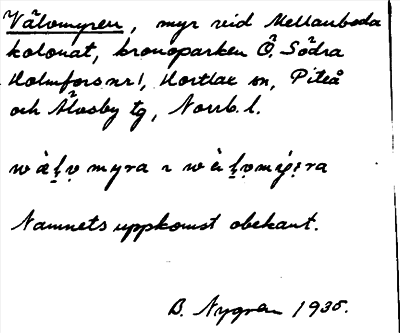 Välvomyren, myr vid Mellanboda
kolonat, kronoparken Ö. Södra
Holmfors nr 1, Hortlax sn, Piteå
och Älvsby tg, Norrb. l.
Namnets uppkomst obekant.
B. Nygren 1935.